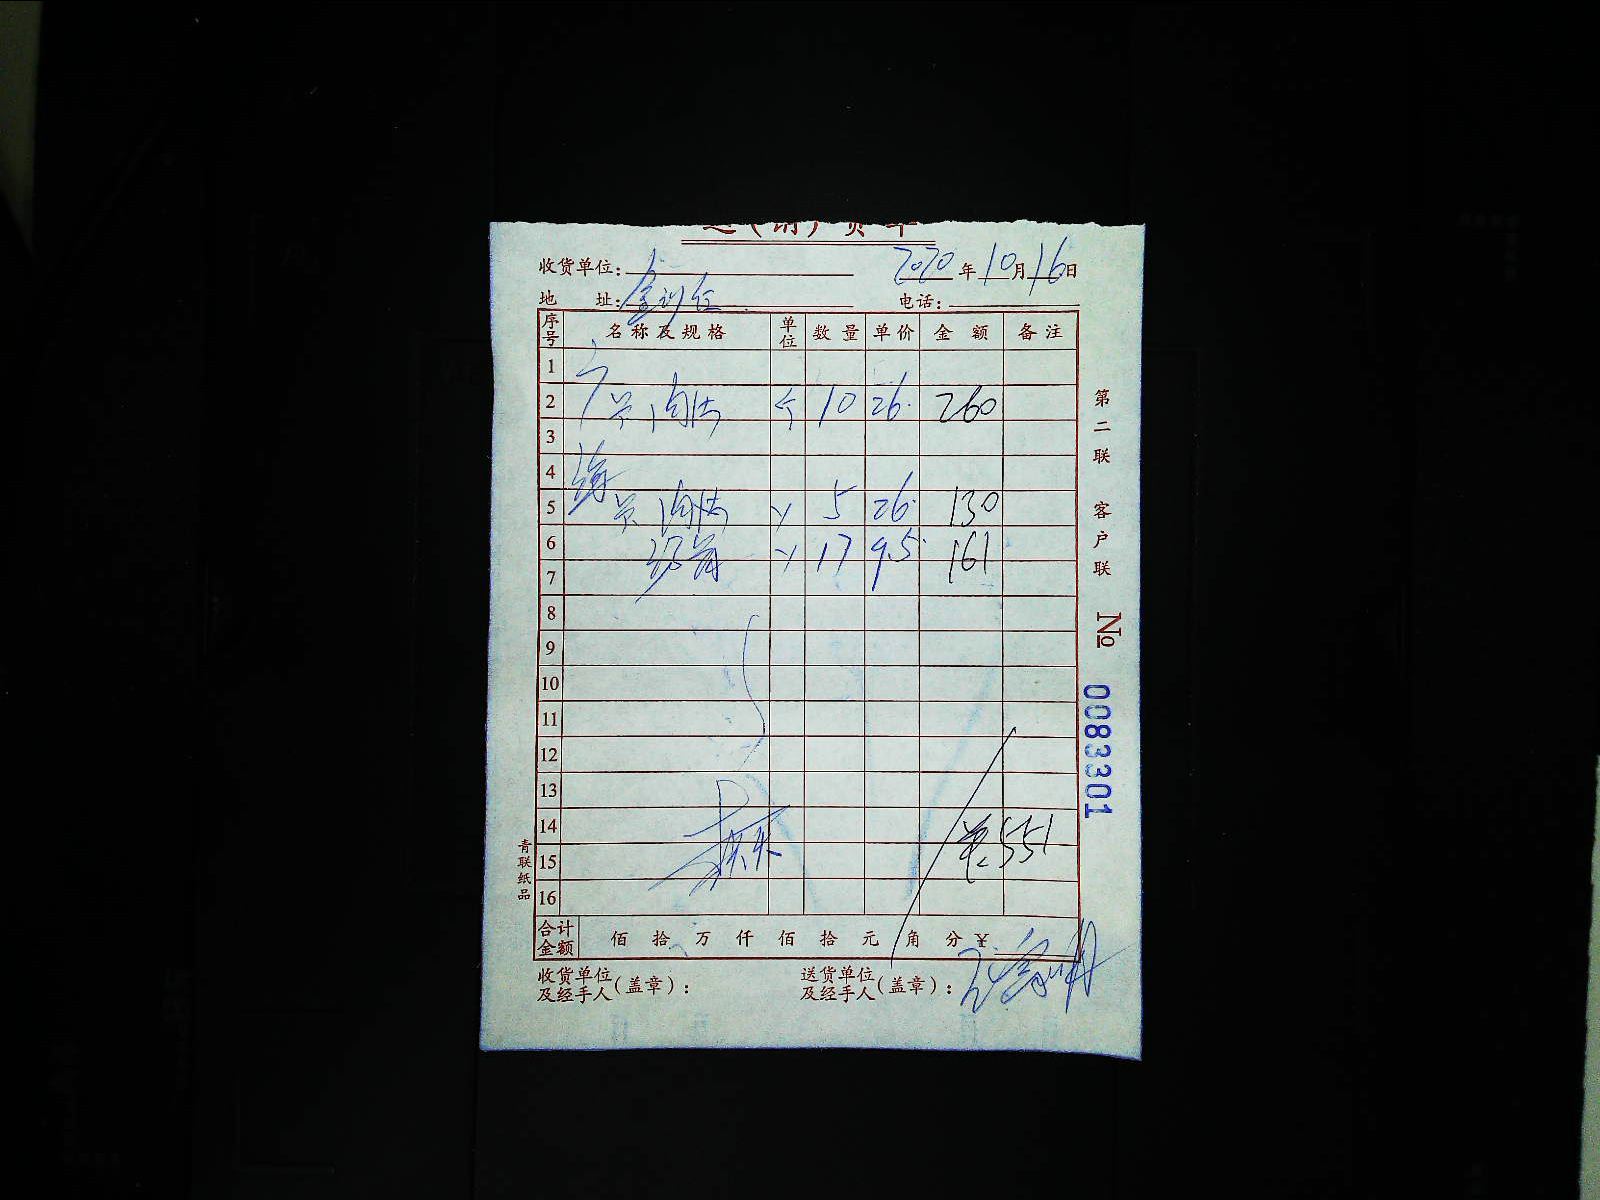 收货单位: 2020年10月16日
地 址: 电话:
序号 名称及规格 单位 数量 单价 金额 备注
1
2 个 10 26. 260
3
4
5 5 26. 130
6 17 9.5 161
7
8
9
10
11
12
13
14 551
15
16
合计金额 佰 拾 万 仟 佰 拾 元 角 分 ¥
收货单位及经手人(盖章): 送货单位及经手人(盖章):
第二联 客户联
№ 0083301
青联纸品